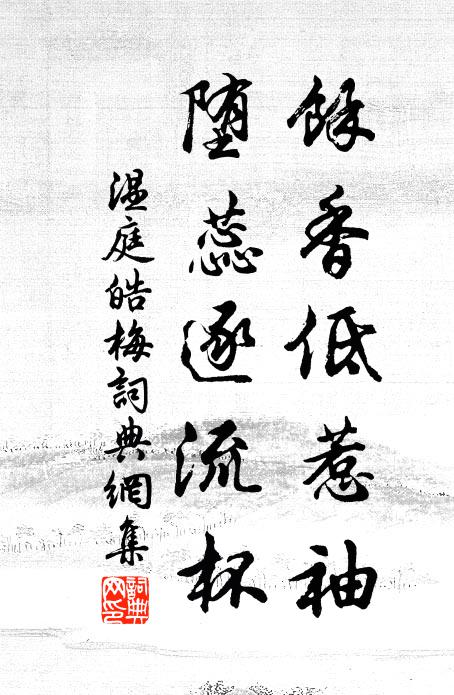 餘香低惹袖
堕蕊逐流杯
温庭皓梅詞典網集
詞典网印